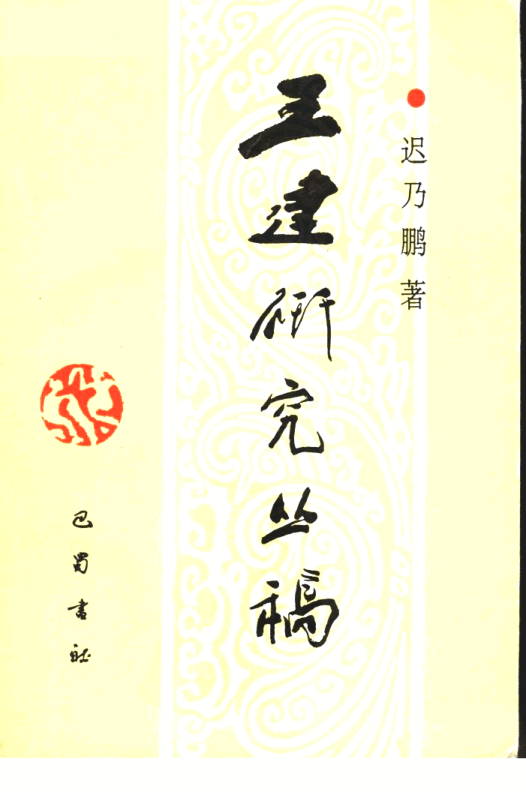 迟乃鹏著
王建研究丛稿
巴蜀书社